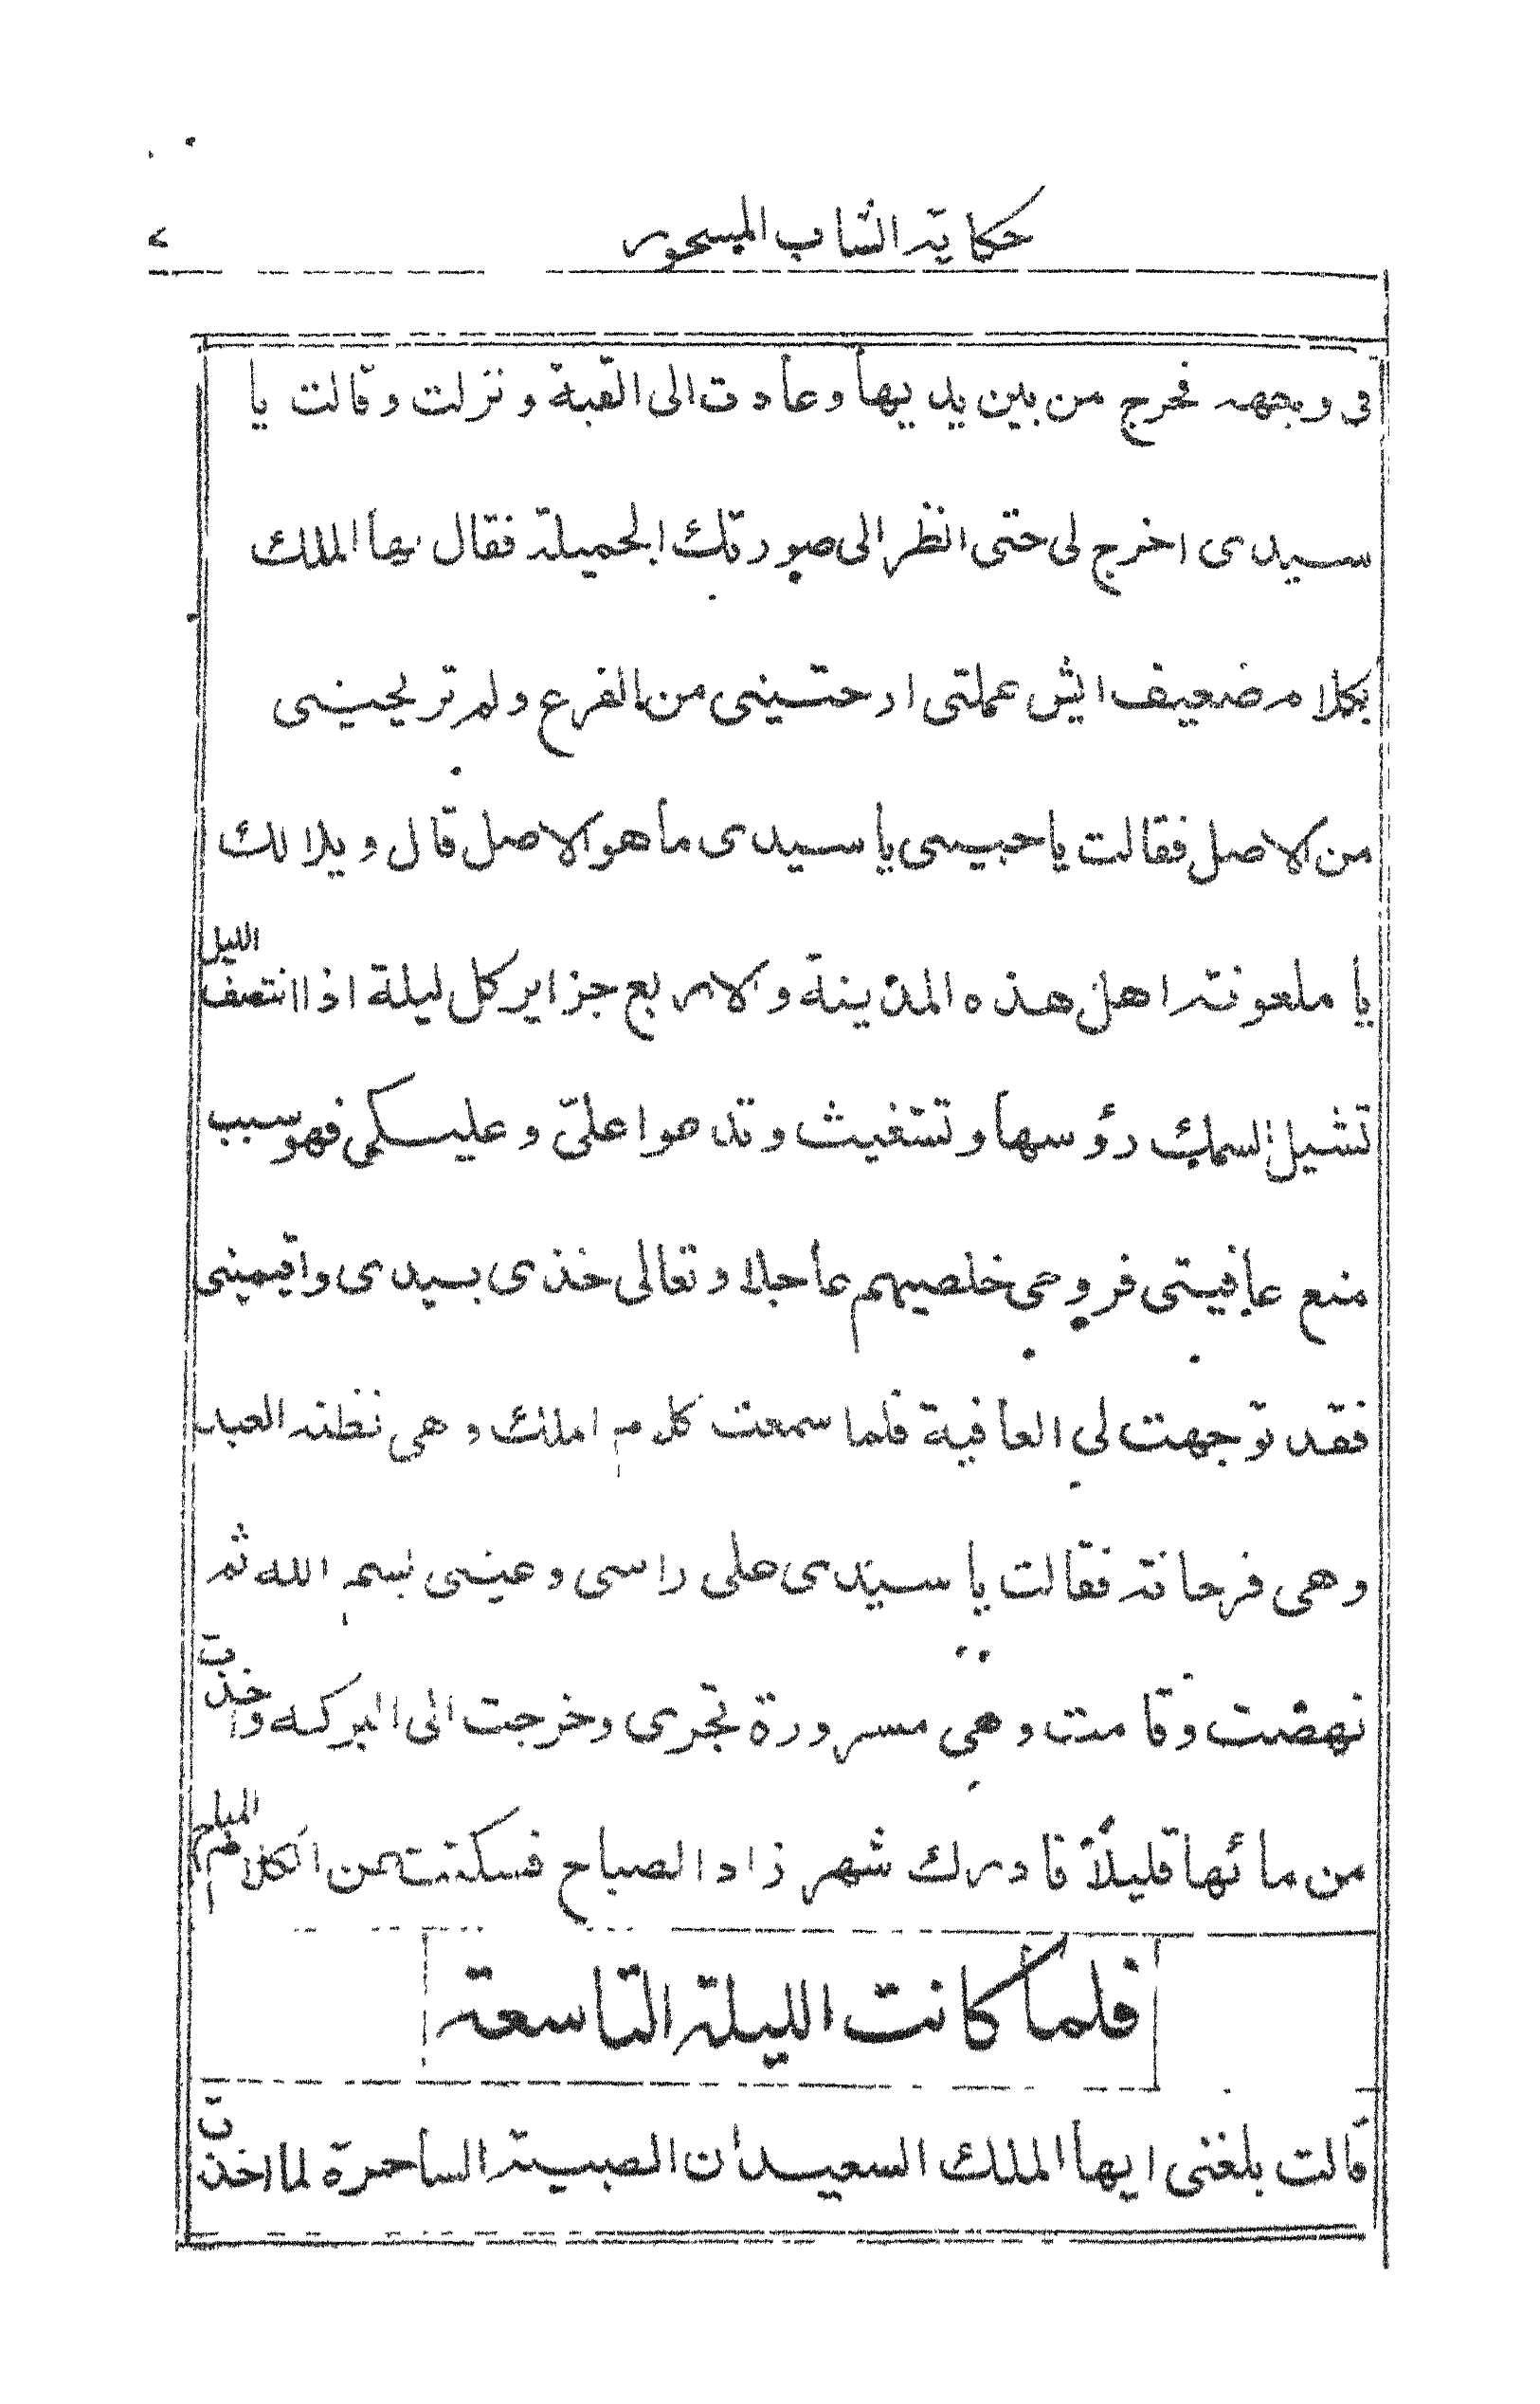 حكاية الشاب المسحور
٧
فى وجهه فخرج من بين يديها وعادت الى القبة ونزلت وقالت يا
سيدى اخرج لى حتى انظر الى صورتك الجميلة فقال لها الملك
بكلام ضعيف ايش عملتى ارحتسينى من الفرع ولم تريحينى
من الاصل فقالت يا حبيبى يا سيدى ما هو الاصل قال ويلا لك
يا ملعونة اهل هذه المدينة والاربع جزاير كل ليلة اذا انتصف الليل
تشيل السمك رؤسها وتستغيث وتدعوا علىّ وعليكى فهو سبب
منع عافيتى فروحى خلصيهم عاجلا وتعالى خذى بيدى واقيمينى
فقد توجهت لى العافية فلما سمعت كلام الملك وهى تظنه العبد
وهى فرحانة فقالت يا سيدى على راسى وعينى بسم الله ثم
نهضت وقامت وهى مسرورة تجرى وخرجت الى البركه واخذت
من مائها قليلاً فادرك شهرزاد الصباح فسكتت عن الكلام المباح
فلما كانت الليلة التاسعة
قالت بلغنى ايها الملك السعيد ان الصبية الساحرة لما اخذت